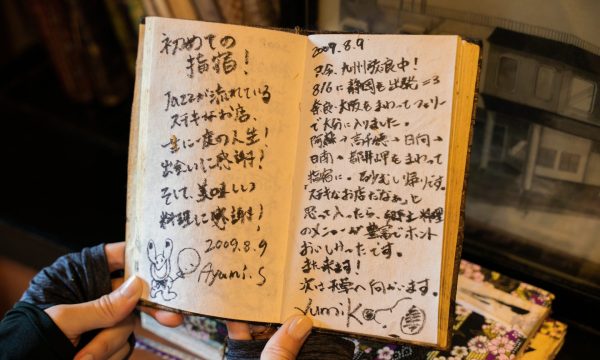 初めての
指宿！
Jazzが流れている
ステキなお店、
一生に一度の人生！
出会いに感謝！
そして、美味しい
料理に感謝！
2009.8.9
Ayumi.S
2009.8.9
只今、九州放浪中！
8/6に静岡を出発＝3
奈良・大阪をまわってフェリー
で大分に入りました。
阿蘇→高千穂→日向→
日南→都井岬をまわって
指宿に。砂むし帰りです。
ステキなお店だなぁっと
思って入ったら、郷土料理
のメニューが豊富でホント
おいしかったです。
また来ます！
次は天草へ向かいます。
Yumiko